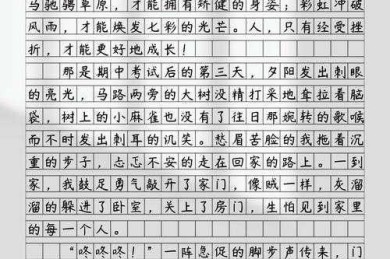 马驰骋草原，才能拥有矫健的身姿；彩虹冲破
风雨，才能焕发七彩的光芒。人，只有经受挫
折，才能更好地成长！
那是期中考试后的第三天，夕阳发出刺眼
的亮光，马路两旁的大树没精打采地耷拉着脑
袋，树上的小麻雀也没有了往日那婉转的歌喉
而不时发出刺耳的讥笑。愁眉苦脸的我拖着沉
重的步子，忐忑不安的走在回家的路上。一到
家，我鼓足勇气敲开了家门，像贼一样，灰溜
溜的躲进了卧室，关上了房门，生怕见到家里
的每一个人。
“咚咚咚！”一阵急促的脚步声传来，门